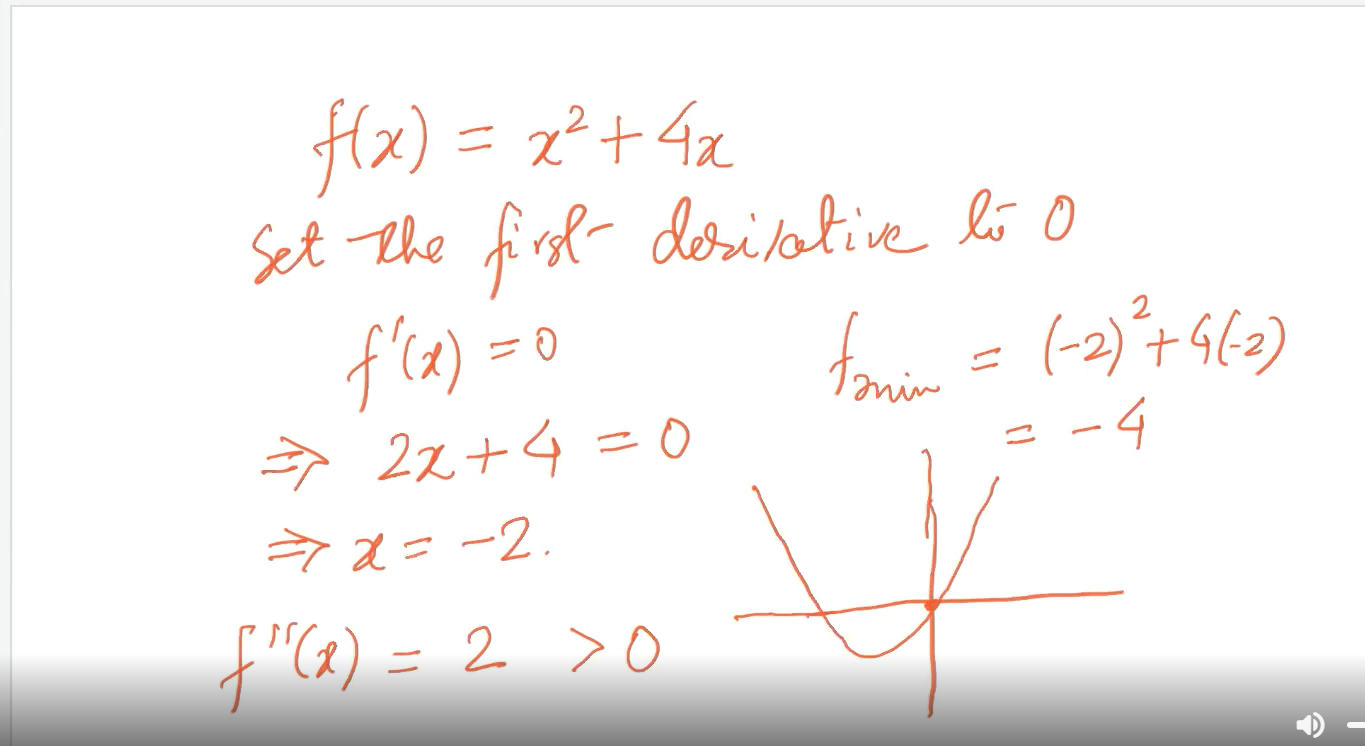 f(x) = x² + 4x
Set the first derivative to 0
f'(x) = 0
⇒ 2x + 4 = 0
⇒ x = -2.
f''(x) = 2 > 0
f_min = (-2)² + 4(-2)
= -4